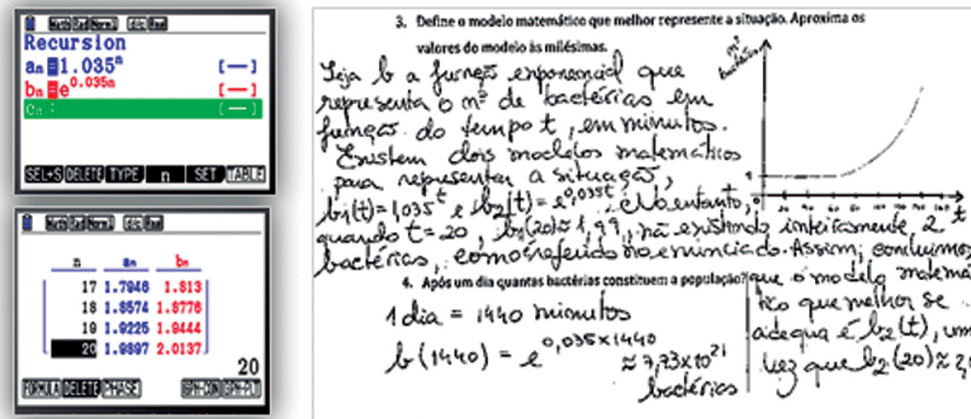 Math Rad Norm1 d/c Real
Recursion
an=1.035ⁿ [—]
bn=e^0.035n [—]
cn: [—]
SEL+S DELETE TYPE n SET TABLE
Math Rad Norm1 d/c Real
n an bn
17 1.7946 1.813
18 1.8574 1.8776
19 1.9225 1.9444
20 1.9897 2.0137
20
FORMULA DELETE PHASE GPH-CON GPH-PLT
3. Define o modelo matemático que melhor represente a situação. Aproxima os
valores do modelo às milésimas.
Seja b a função exponencial que
representa o nº de bactérias em
função do tempo t, em minutos.
Existem dois modelos matemáticos
para representar a situação,
b₁(t)=1,035^t e b₂(t)=e^0,035t. No entanto,
quando t=20, b₁(20)≈1,99, não existindo inteiramente 2
bactérias, como referido no enunciado. Assim, concluimos
que o modelo matemá
tico que melhor se
adequa é b₂(t), um
vez que b₂(20)≈2,0
nº bactérias
1
0
t
4. Após um dia quantas bactérias constituem a população?
1 dia = 1440 minutos
b(1440) = e^0,035×1440 ≈ 7,73×10²¹
bactérias